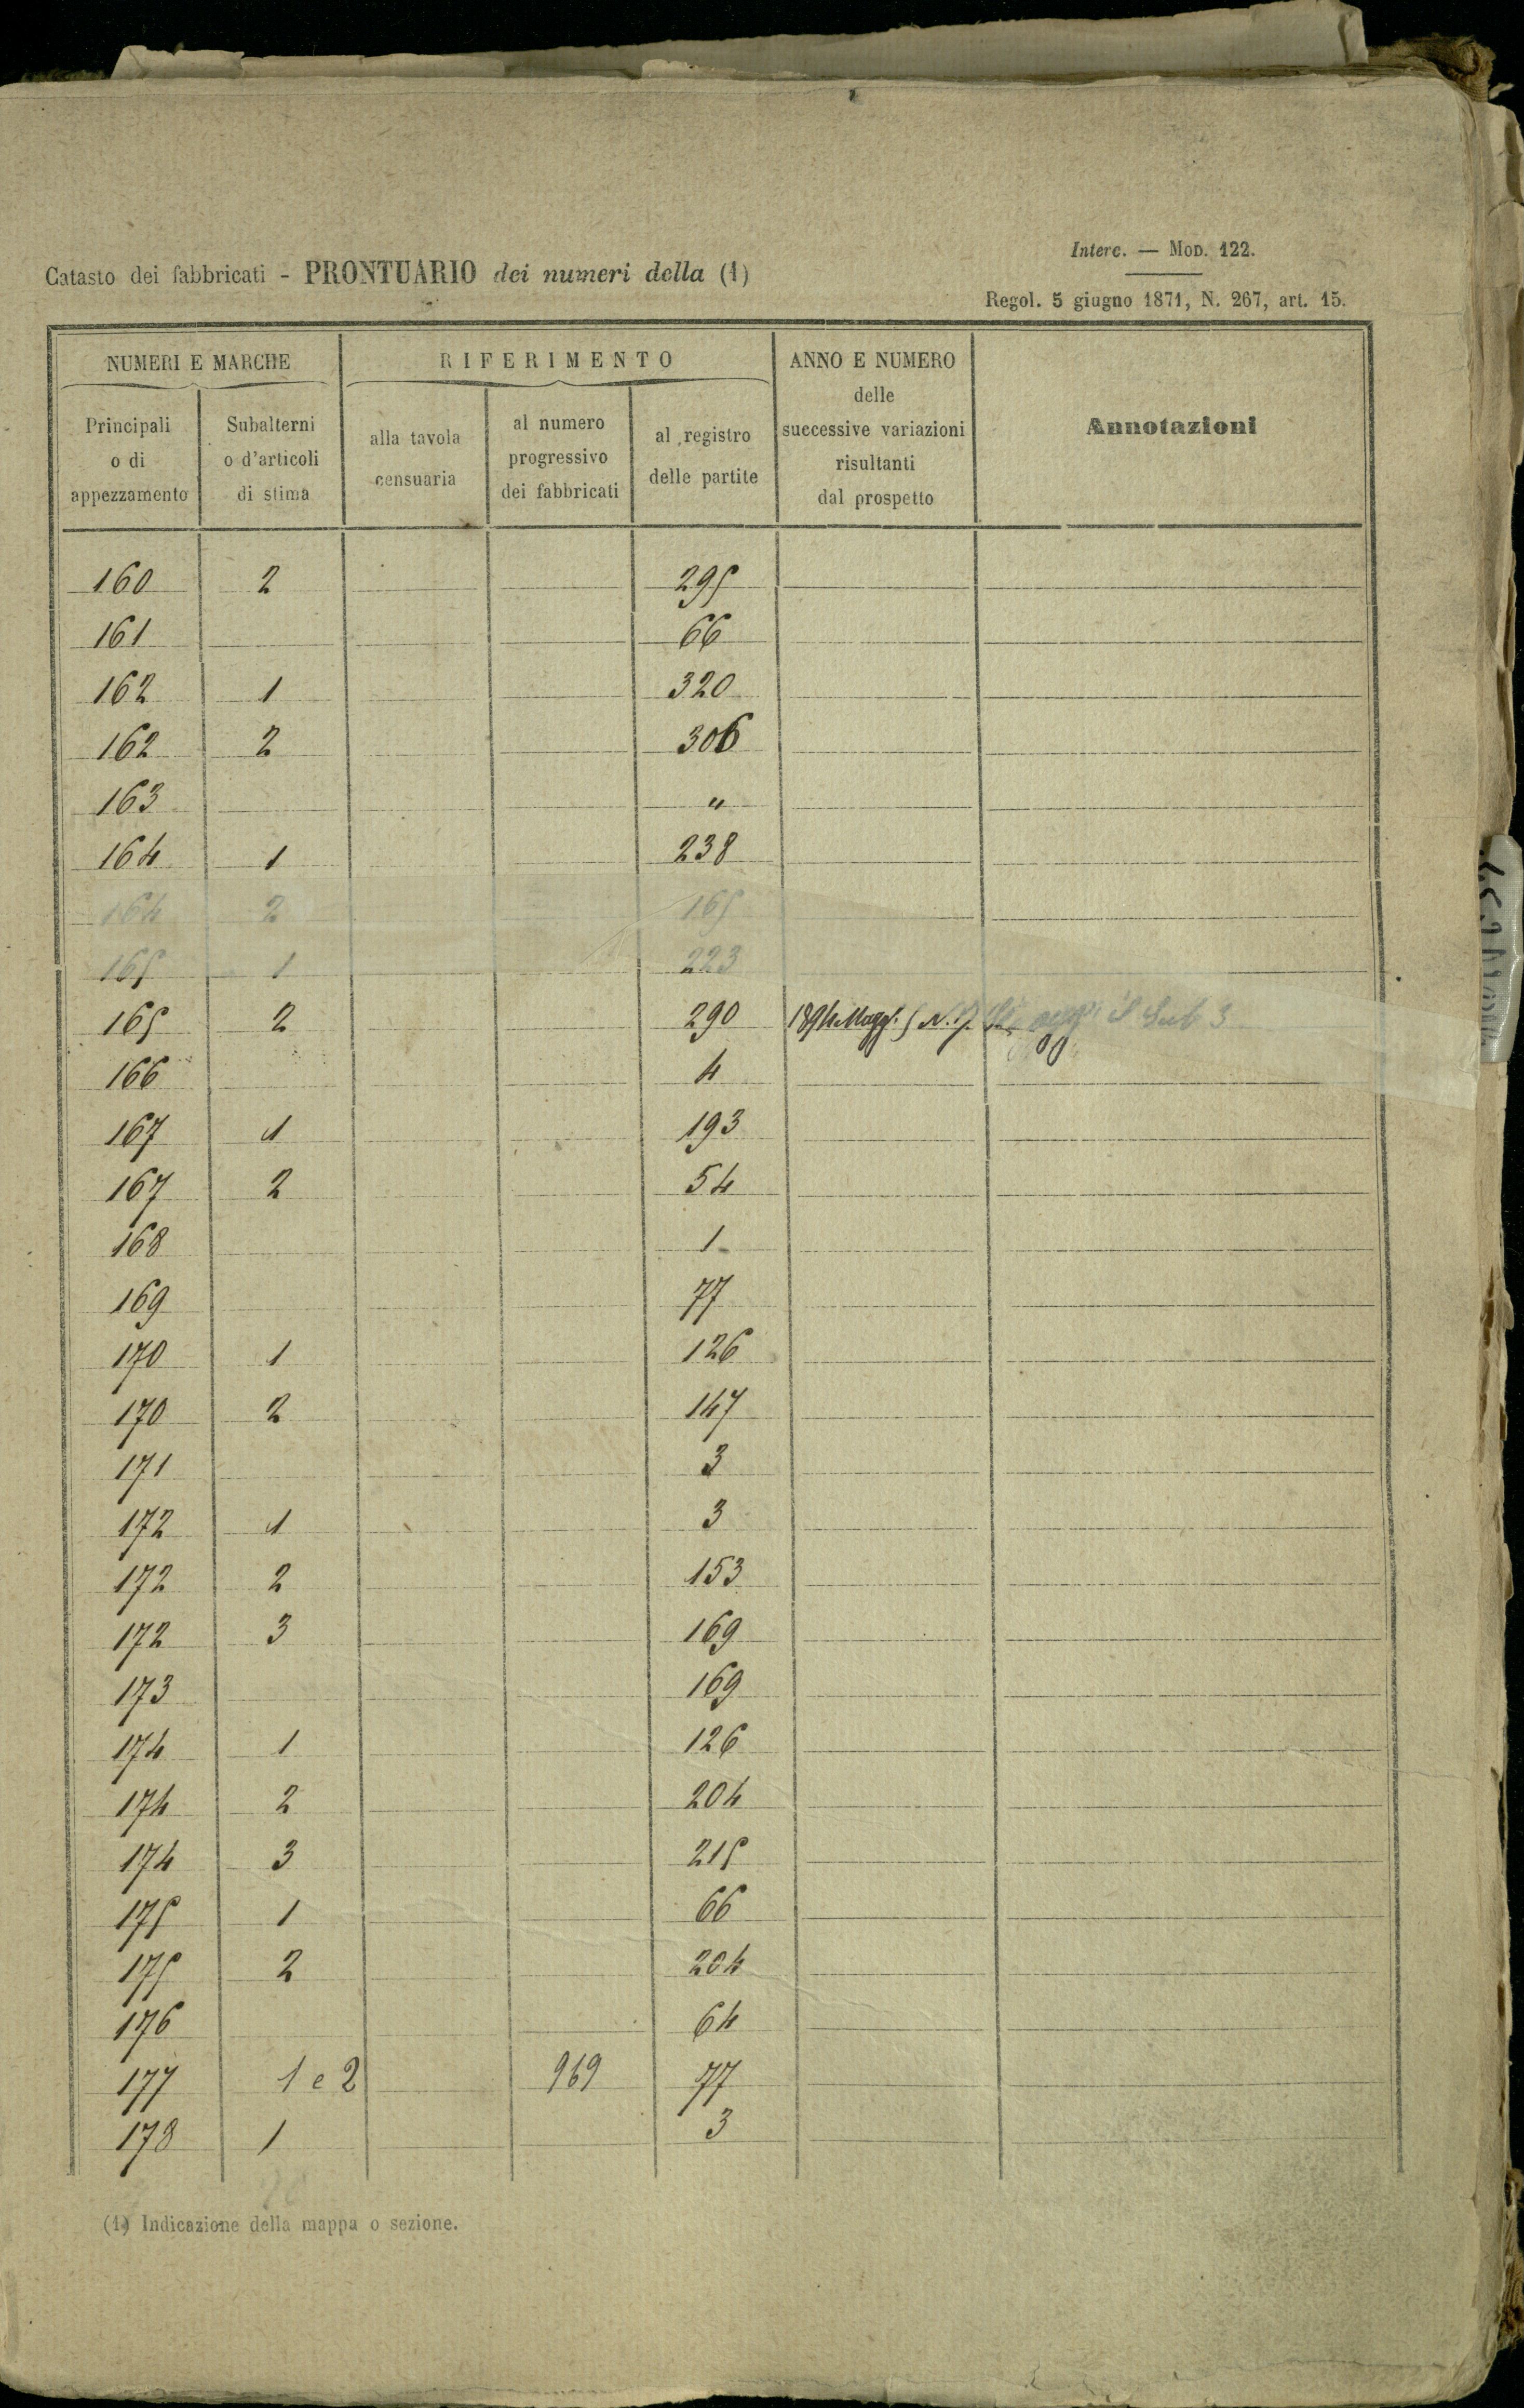 Interc. — Mod. 122.
Catasto dei fabbricati - PRONTUARIO dei numeri della (1)
Regol. 5 giugno 1871, N. 267, art. 15.
NUMERI E MARCHE
RIFERIMENTO
ANNO E NUMERO
delle
successive variazioni
risultanti
dal prospetto
Annotazioni
Principali
o di
appezzamento
Subalterni
o d'articoli
di stima
alla tavola
censuaria
al numero
progressivo
dei fabbricati
al registro
delle partite
160 2 295
161 66
162 1 320
162 2 306
163 "
164 1 238
164 2 165
165 1 223
165 2 290 1894 Magg. 5 N. il Sub 3
166 4
167 1 193
167 2 54
168 1
169 77
170 1 126
170 2 147
171 3
172 1 3
172 2 153
172 3 169
173 169
174 1 126
174 2 204
174 3 215
175 1 66
175 2 204
176 64
177 1 e 2 969 77
178 1 3
(1) Indicazione della mappa o sezione.